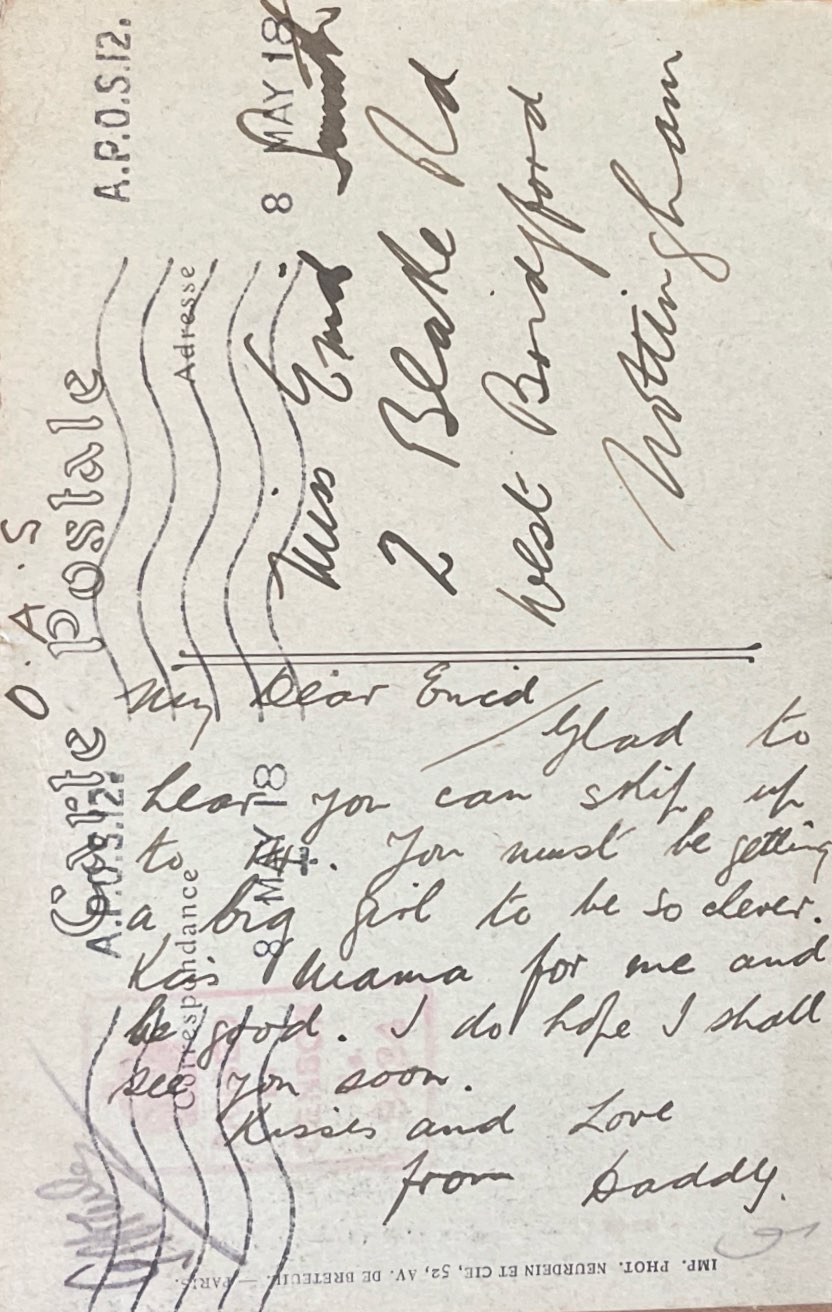 O.A.S
Carte Postale
A.P.O.S.12.
8 MAY 18
A.P.O.S.12.
8 MAY 18
Correspondance
Adresse
My Dear Enid
Glad to
hear you can skip up
to . You must be getting
a big girl to be so clever.
Kiss Mama for me and
be good. I do hope I shall
see you soon.
Kisses and Love
from Daddy.
Miss Enid
2 Blake Rd
West Bridgford
Nottingham
IMP. PHOT. NEURDEIN ET CIE, 52, AV. DE BRETEUIL. — PARIS.